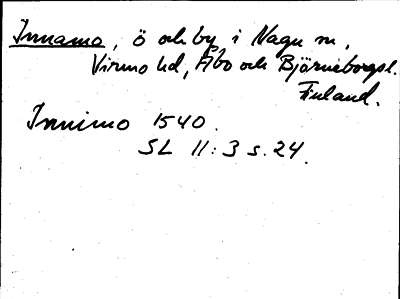 Innamo, ö och by i Nagu sn,
Virmo hd, Åbo och Björneborgsl.
Finland.
Innimo 1540.
SL 11:3 s. 24.